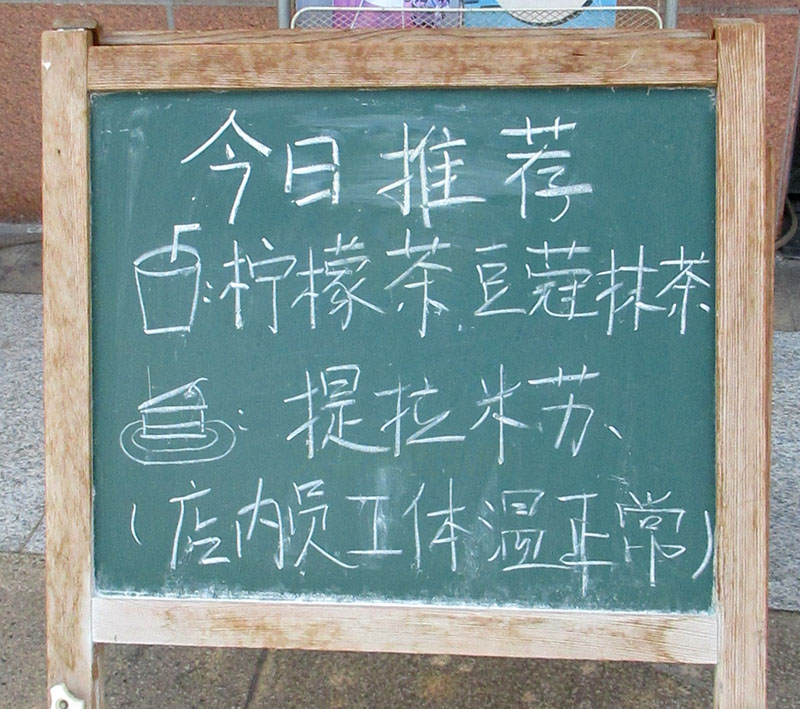 今日推荐
:柠檬茶 豆蔻抹茶
:提拉米苏、
(店内员工体温正常)